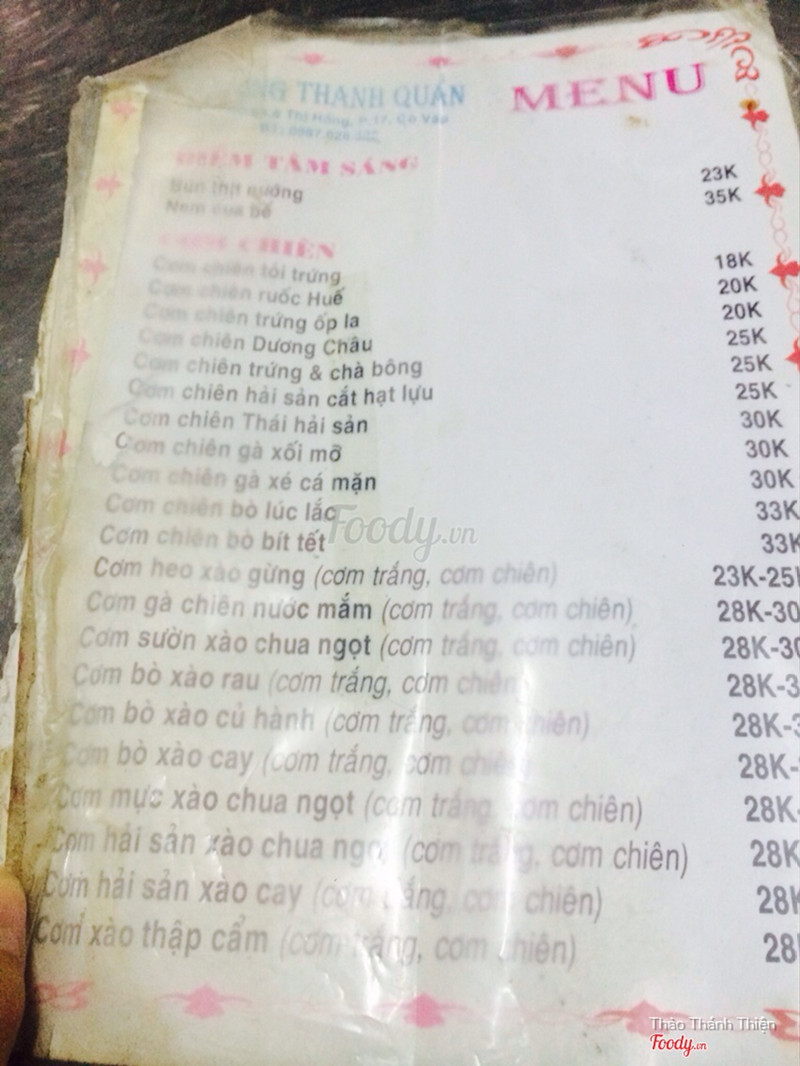 THANH QUÁN
MENU
Thị Hồng, P.17, Gò Vấp
ĐIỂM TÂM SÁNG
Bún thịt nướng 23K
Nem cua bể 35K
CƠM CHIÊN
Cơm chiên tỏi trứng 18K
Cơm chiên ruốc Huế 20K
Cơm chiên trứng ốp la 20K
Cơm chiên Dương Châu 25K
Cơm chiên trứng & chà bông 25K
Cơm chiên hải sản cắt hạt lựu 25K
Cơm chiên Thái hải sản 30K
Cơm chiên gà xối mỡ 30K
Cơm chiên gà xé cá mặn 30K
Cơm chiên bò lúc lắc 33K
Cơm chiên bò bít tết 33K
Cơm heo xào gừng (cơm trắng, cơm chiên) 23K-25
Cơm gà chiên nước mắm (cơm trắng, cơm chiên) 28K-30
Cơm sườn xào chua ngọt (cơm trắng, cơm chiên) 28K-30
Cơm bò xào rau (cơm trắng, cơm chiên 28K-3
Cơm bò xào củ hành (cơm trắng, cơm chiên) 28K-3
Cơm bò xào cay (cơm trắng, cơm chiên 28K-
Cơm mực xào chua ngọt (cơm trắng, cơm chiên) 28K-
Cơm hải sản xào chua ngọt (cơm trắng, cơm chiên) 28K
Cơm hải sản xào cay (cơm trắng, cơm chiên) 28K
Cơm xào thập cẩm (cơm trắng, cơm chiên) 28
Foody.vn
Thảo Thánh Thiện
Foody.vn